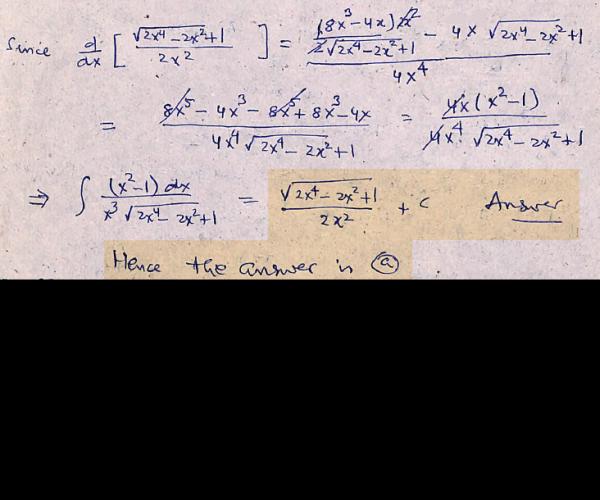 Since d/dx [ √(2x⁴-2x²+1) / 2x² ] = ( (8x³-4x)2x² / 2√(2x⁴-2x²+1) - 4x √(2x⁴-2x²+1) ) / 4x⁴
= (8x⁵ - 4x³ - 8x⁵ + 8x³ - 4x) / (4x⁴ √(2x⁴-2x²+1)) = 4x(x²-1) / (4x⁴ √(2x⁴-2x²+1))
⇒ ∫ (x²-1) dx / (x³ √(2x⁴-2x²+1)) = √(2x⁴-2x²+1) / 2x² + c Answer
Hence the answer is ⓐ